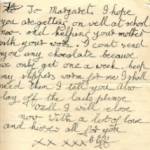 To Margaret, I hope
you are getting on well at school
now and helping your mother
with your work. I cant send
you any chocolate because
we only get one a week. keep
my slippers warm for me I shall
need them I tell you. Also
the lady please
Well I will close
now with a lot of love
and kisses all for you
x x x x x x x